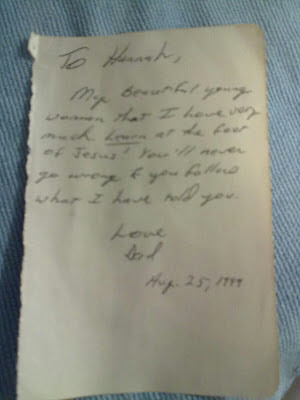 To Hannah,
My Beautiful young
woman that I love very
much. Learn at the feet
of Jesus! You'll never
go wrong if you follow
what I have told you.
Love
Dad
Aug. 25, 1999